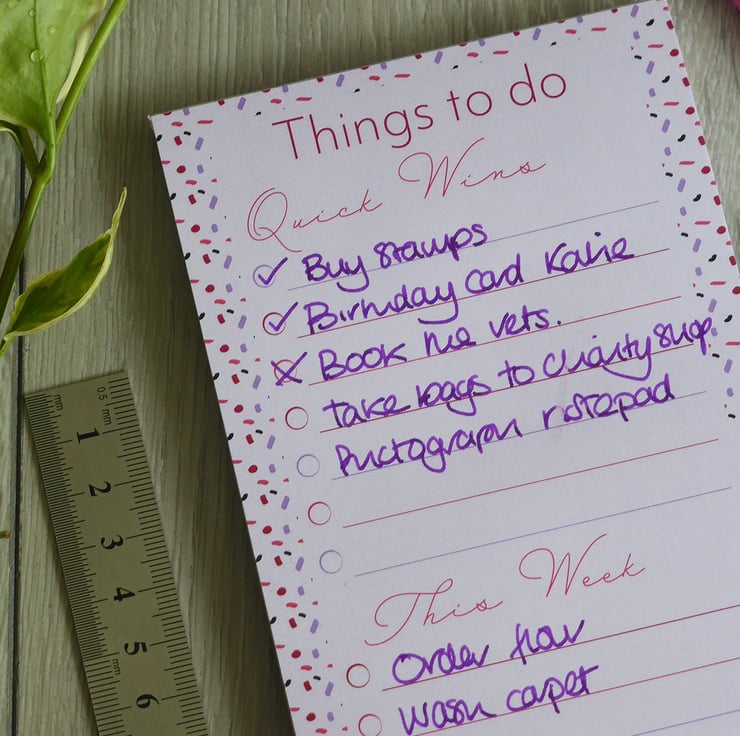 Things to do
Quick Wins
Buy stamps
Birthday card Katie
Book the vets.
take bags to charity shop.
Photograph notepad
This Week
Order flour
Wash carpet
mm
0.5 mm
1
2
3
4
5
mm
6